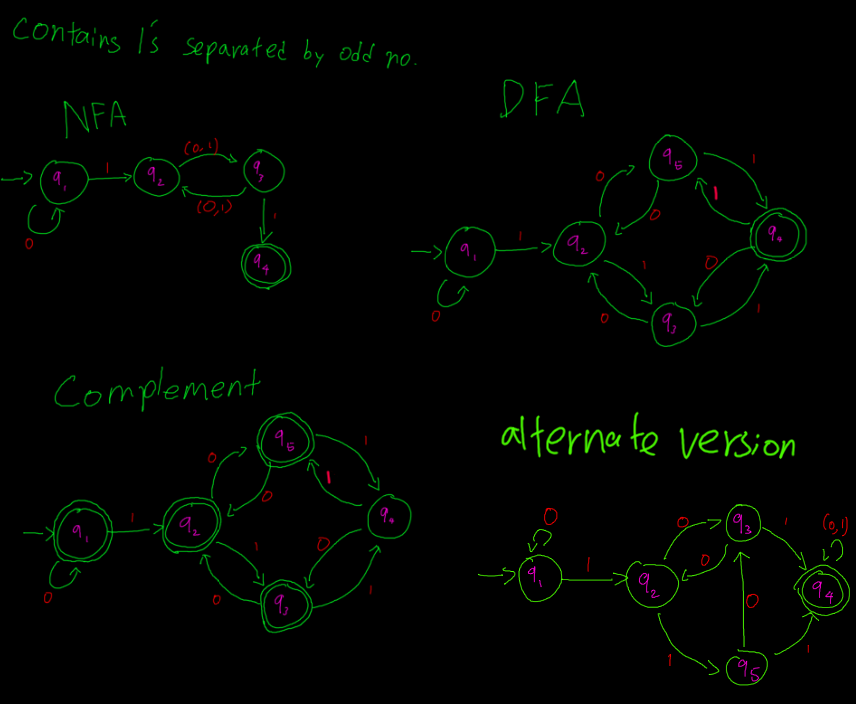 Contains 1's separated by odd no.
NFA
q1
0
1
q2
(0,1)
(0,1)
q3
1
q4
DFA
q1
0
1
q2
0
0
q5
1
1
q4
1
0
q3
0
1
Complement
q1
0
1
q2
0
0
q5
1
1
q4
1
0
q3
0
1
alternate version
q1
0
1
q2
0
0
q3
1
(0,1)
q4
0
1
q5
1